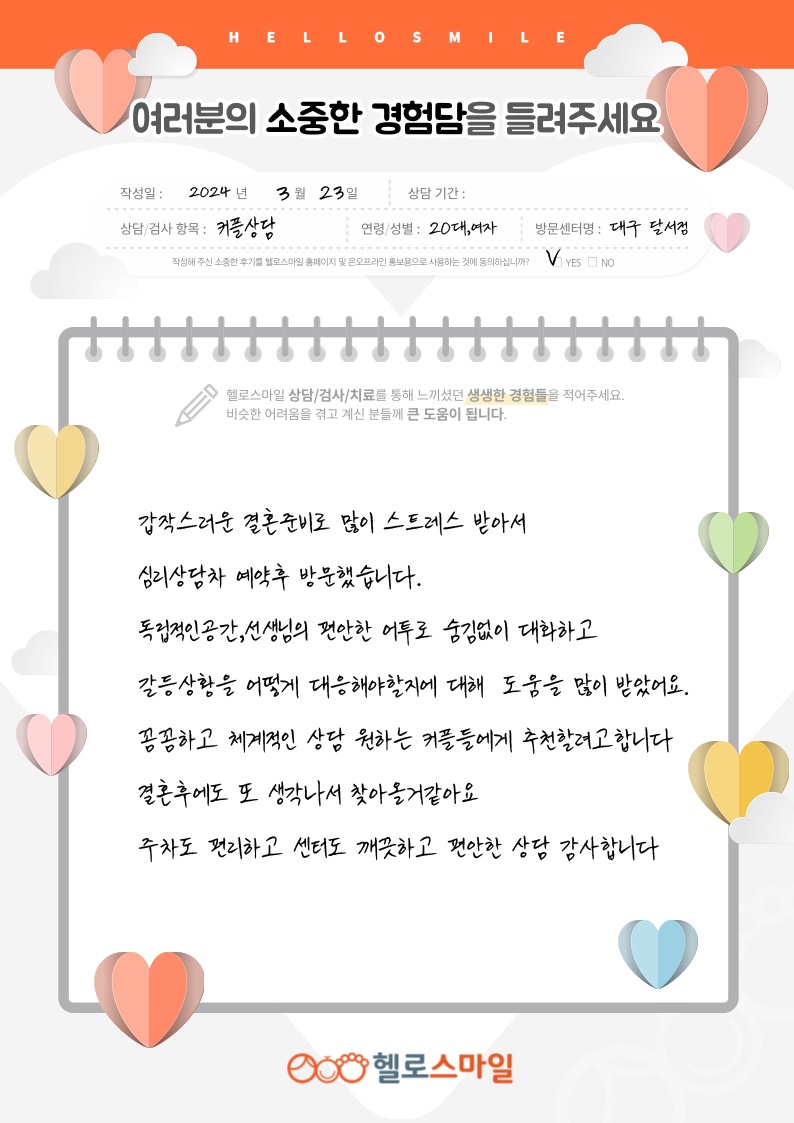 HELLOSMILE
여러분의 소중한 경험담을 들려주세요
작성일 : 2024 년 3 월 23 일 상담 기간 :
상담/검사 항목 : 커플상담 연령/성별 : 20대,여자 방문센터명 : 대구 달서점
작성해 주신 소중한 후기를 헬로스마일 홈페이지 및 온오프라인 홍보용으로 사용하는 것에 동의하십니까? V YES NO
헬로스마일 상담/검사/치료를 통해 느끼셨던 생생한 경험들을 적어주세요.
비슷한 어려움을 겪고 계신 분들께 큰 도움이 됩니다.
갑작스러운 결혼준비로 많이 스트레스 받아서
심리상담차 예약후 방문했습니다.
독립적인공간,선생님의 편안한 어투로 숨김없이 대화하고
갈등상황을 어떻게 대응해야할지에 대해 도움을 많이 받았어요.
꼼꼼하고 체계적인 상담 원하는 커플들에게 추천할려고합니다
결혼후에도 또 생각나서 찾아올거같아요
주차도 편리하고 센터도 깨끗하고 편안한 상담 감사합니다
헬로스마일